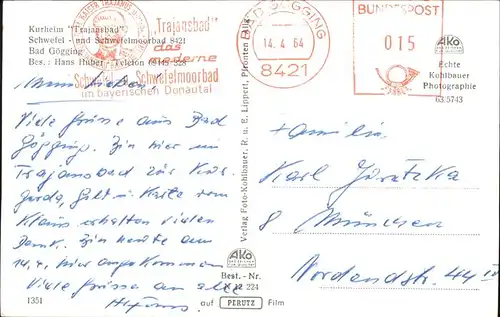 Kurheim "Trajansbad"
Schwefel- und Schwefelmoorbad 8421
Bad Gögging
Bes.: Hans Huber - Telefon
"Trajansbad"
das
moderne
Schwefel- u. Schwefelmoorbad
im bayerischen Donautal
BAD GÖGGING
14.4.64
8421
BUNDESPOST
015
AKO
Echte
Kohlbauer
Photographie
63/5743
Viele Grüsse aus Bad
Gögging. Bin hier im
Trajansbad zur Kur.
Gerda, Geld u. Karte von
Klaus erhalten vielen
Dank. Bin heute am
14.4. hier angekommen
Viele Grüsse an alle
Familie
Karl
8 München
Nordendstr. 44
Verlag Foto-Kohlbauer, R. u. E. Lippert, Pfronten Allg.
AKO
Best.-Nr.
X 12 224
1351
auf PERUTZ Film